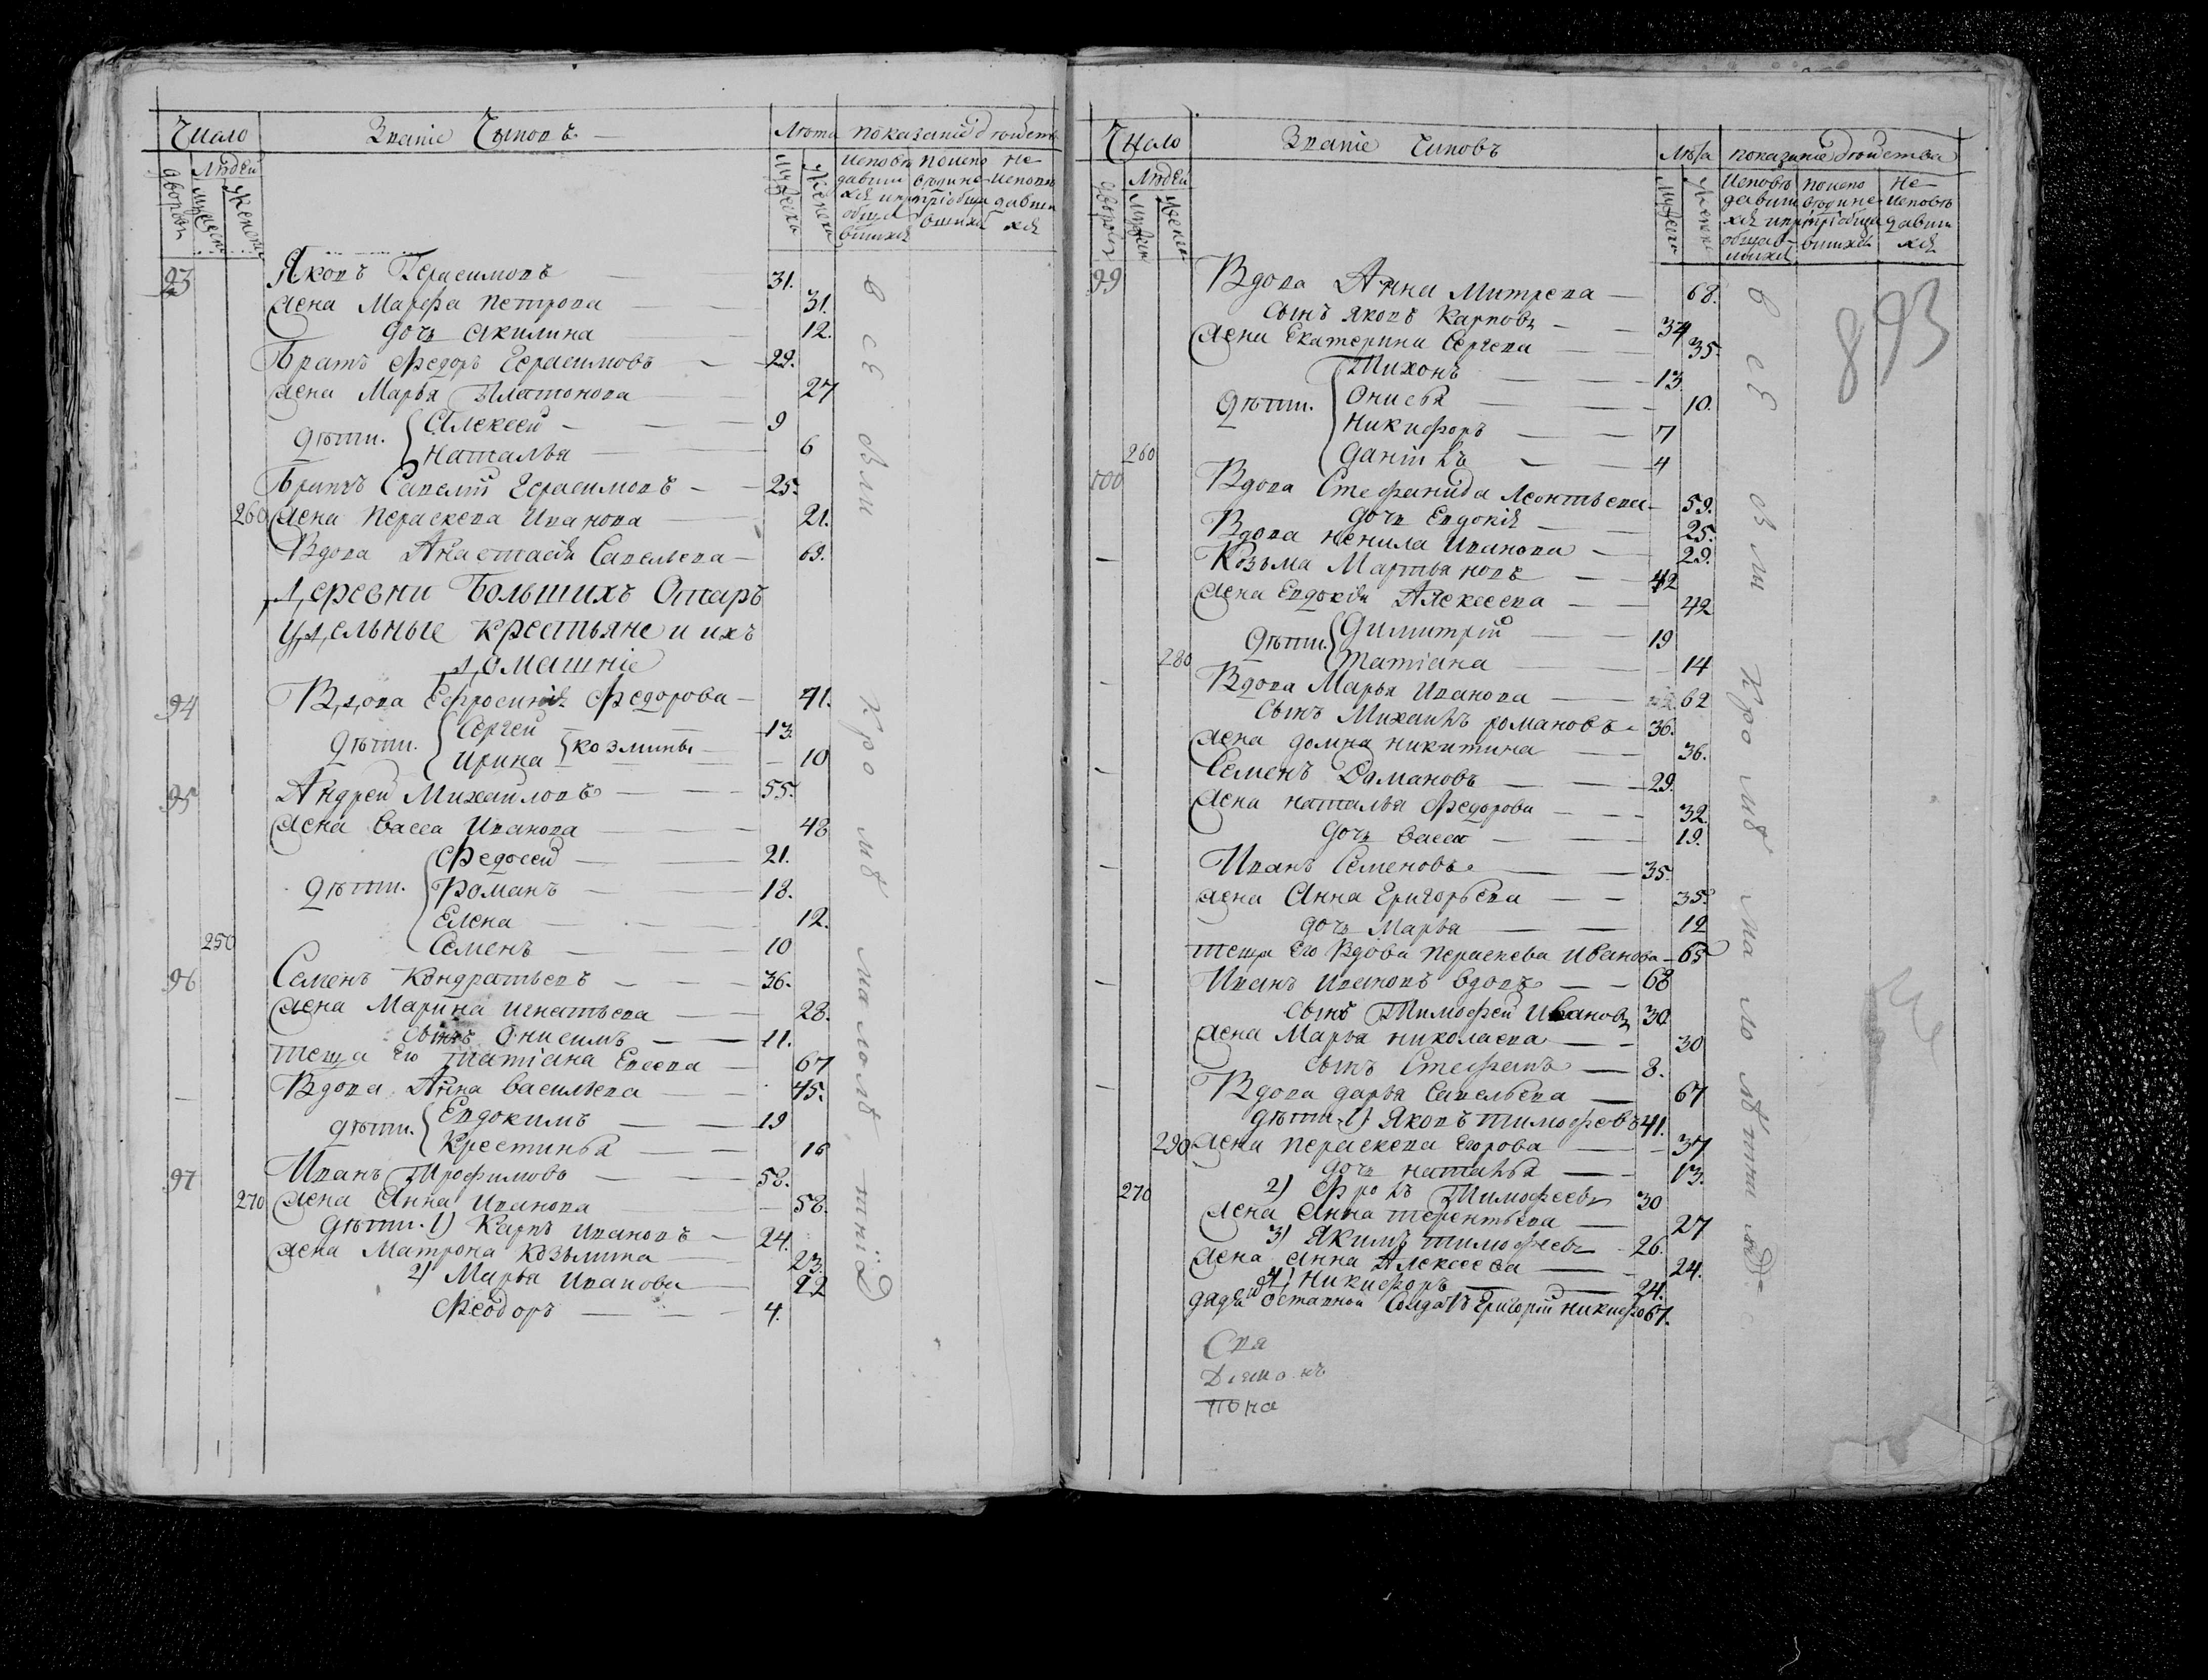 Число
Званіе Чиновъ.
Лѣта
показаніе дѣйств
Людей
дворовъ
мужеска
женска
мужеска
женска
Исповѣ
давши
хся и при
обща
вшихся
поиспо
вѣдине
пріобща
вшихся
не
исповѣ
давши
хся
93 Яковъ Герасимовъ — 31.
жена Марфа Петрова — 31.
дочь Акилина — 12.
Братъ Федоръ Герасимовъ — 29.
жена Марья Платонова 27
дѣти. Алексей — 9
Наталья — 6
Братъ Савелій Герасимовъ — 25.
260 жена Пераскева Иванова 21.
Вдова Анастасія Савельева — 69.
Деревни Большихъ Отаръ
Удельные крестьяне и ихъ
домашніе
94 Вдова Ефросинія Федорова — 41.
дѣти. Сергей — 13.
Ирина козмины — 10
95 Андрей Михайловъ — 55.
жена Васса Иванова — 48
Федосей — 21.
дѣти. Романъ — 18.
Елена — 12.
250 Семенъ — 10
96 Семенъ Кондратьевъ — 36.
жена Марина Игнатьева — 28.
сынъ Онисимъ — 11.
теща Его Татіана Евсева — 67
— Вдова Анна Васильева — 45.
дѣти. Евдокимъ — 19
Крестинья — 16
97 Иванъ Трофимовъ — 58.
270 жена Анна Иванова — 58.
дѣти. 1) Карпъ Ивановъ — 24.
жена Матрона Козьмина — 23.
2) Марья Иванова — 22
Феодоръ — 4.
все или кромѣ малолѣтнiх
Число
Званіе Чиновъ
Лѣта
показаніе дѣйства
Людей
дворовъ
мужеска
женска
мужеска
женска
Исповѣ
давши
хся и при
общав
шихся
поиспо
вѣдине
пріобща
вшихся
Не
исповѣ
давши
хся
893
99 Вдова Анна Митрева — 68.
сынъ Яковъ Карповъ — 34
жена Екатерина Сергева — 35.
Тихонъ — 13
дѣти. Онисья — 10.
Никифоръ — 7
260 Данилъ — 4
100 Вдова Стефанида Леонтьева — 59.
дочь Евдокія — 25.
Вдова Ненила Иванова — 29.
— Козьма Мартьяновъ — 42
жена Евдокія Алексеева — 42
дѣти. Димитрій — 19
280 Татіана — 14
— Вдова Марья Иванова — 62
сынъ Михаилъ Романовъ — 36.
жена Домна Никитина — 36.
— Семенъ Романовъ — 29.
жена Наталья Федорова — 32.
дочь Васса — 19.
— Иванъ Семеновъ — 35.
жена Анна Григорьева — 35.
дочь Марья — 12
теща Его Вдова Пераскева Иванова — 65
— Иванъ Ивановъ вдовъ — 68
сынъ Тимофей Ивановъ 30
жена Марья Николаева — 30
сынъ Стефанъ — 8.
— Вдова Дарья Савельева — 67
дѣти 1) Яковъ Тимофеевъ 41.
290 жена Пераскева Егорова — 37
дочь Наталья — 13.
270 2) Фролъ Тимофеевъ 30
жена Анна Терентьева — 27
3) Якимъ Тимофеевъ — 26.
жена Анна Алексеева — 24.
4) Никифоръ — 24.
дядя отставной Солдатъ Григорій Никифо 67.
все или кромѣ малолѣтнія